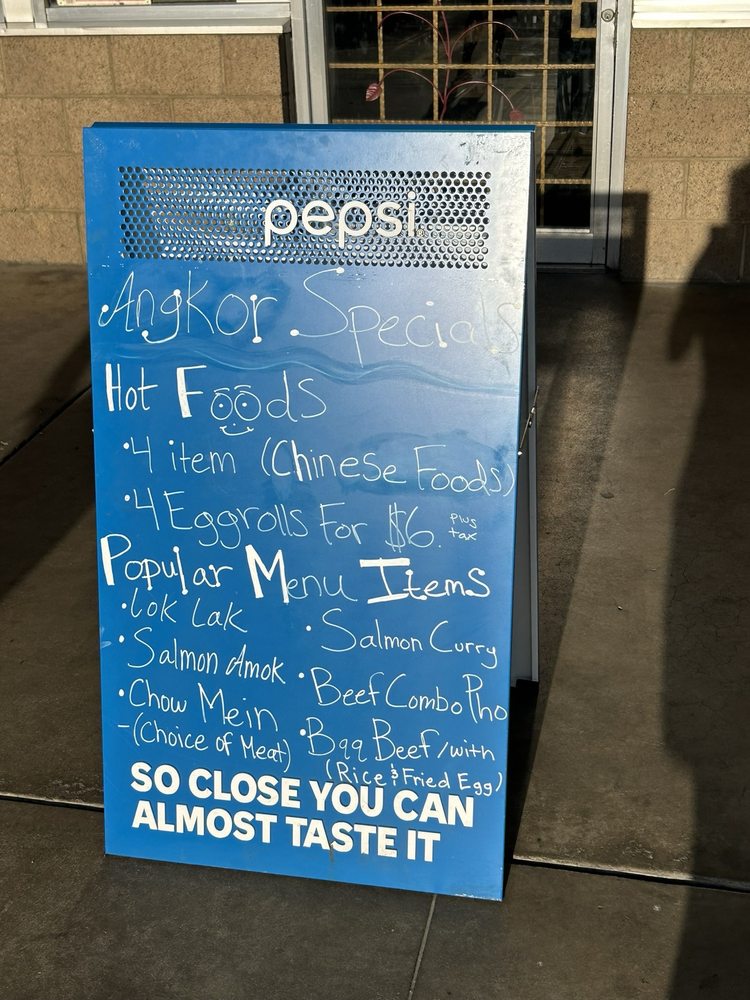 pepsi
Angkor Specials
Hot Foods
• 4 item (Chinese Foods)
• 4 Eggrolls For $6. plus tax
Popular Menu Items
• Lok Lak
• Salmon Amok
• Chow Mein
- (Choice of Meat)
• Salmon Curry
• Beef Combo Pho
• Bqq Beef/with
(Rice & Fried Egg)
SO CLOSE YOU CAN
ALMOST TASTE IT